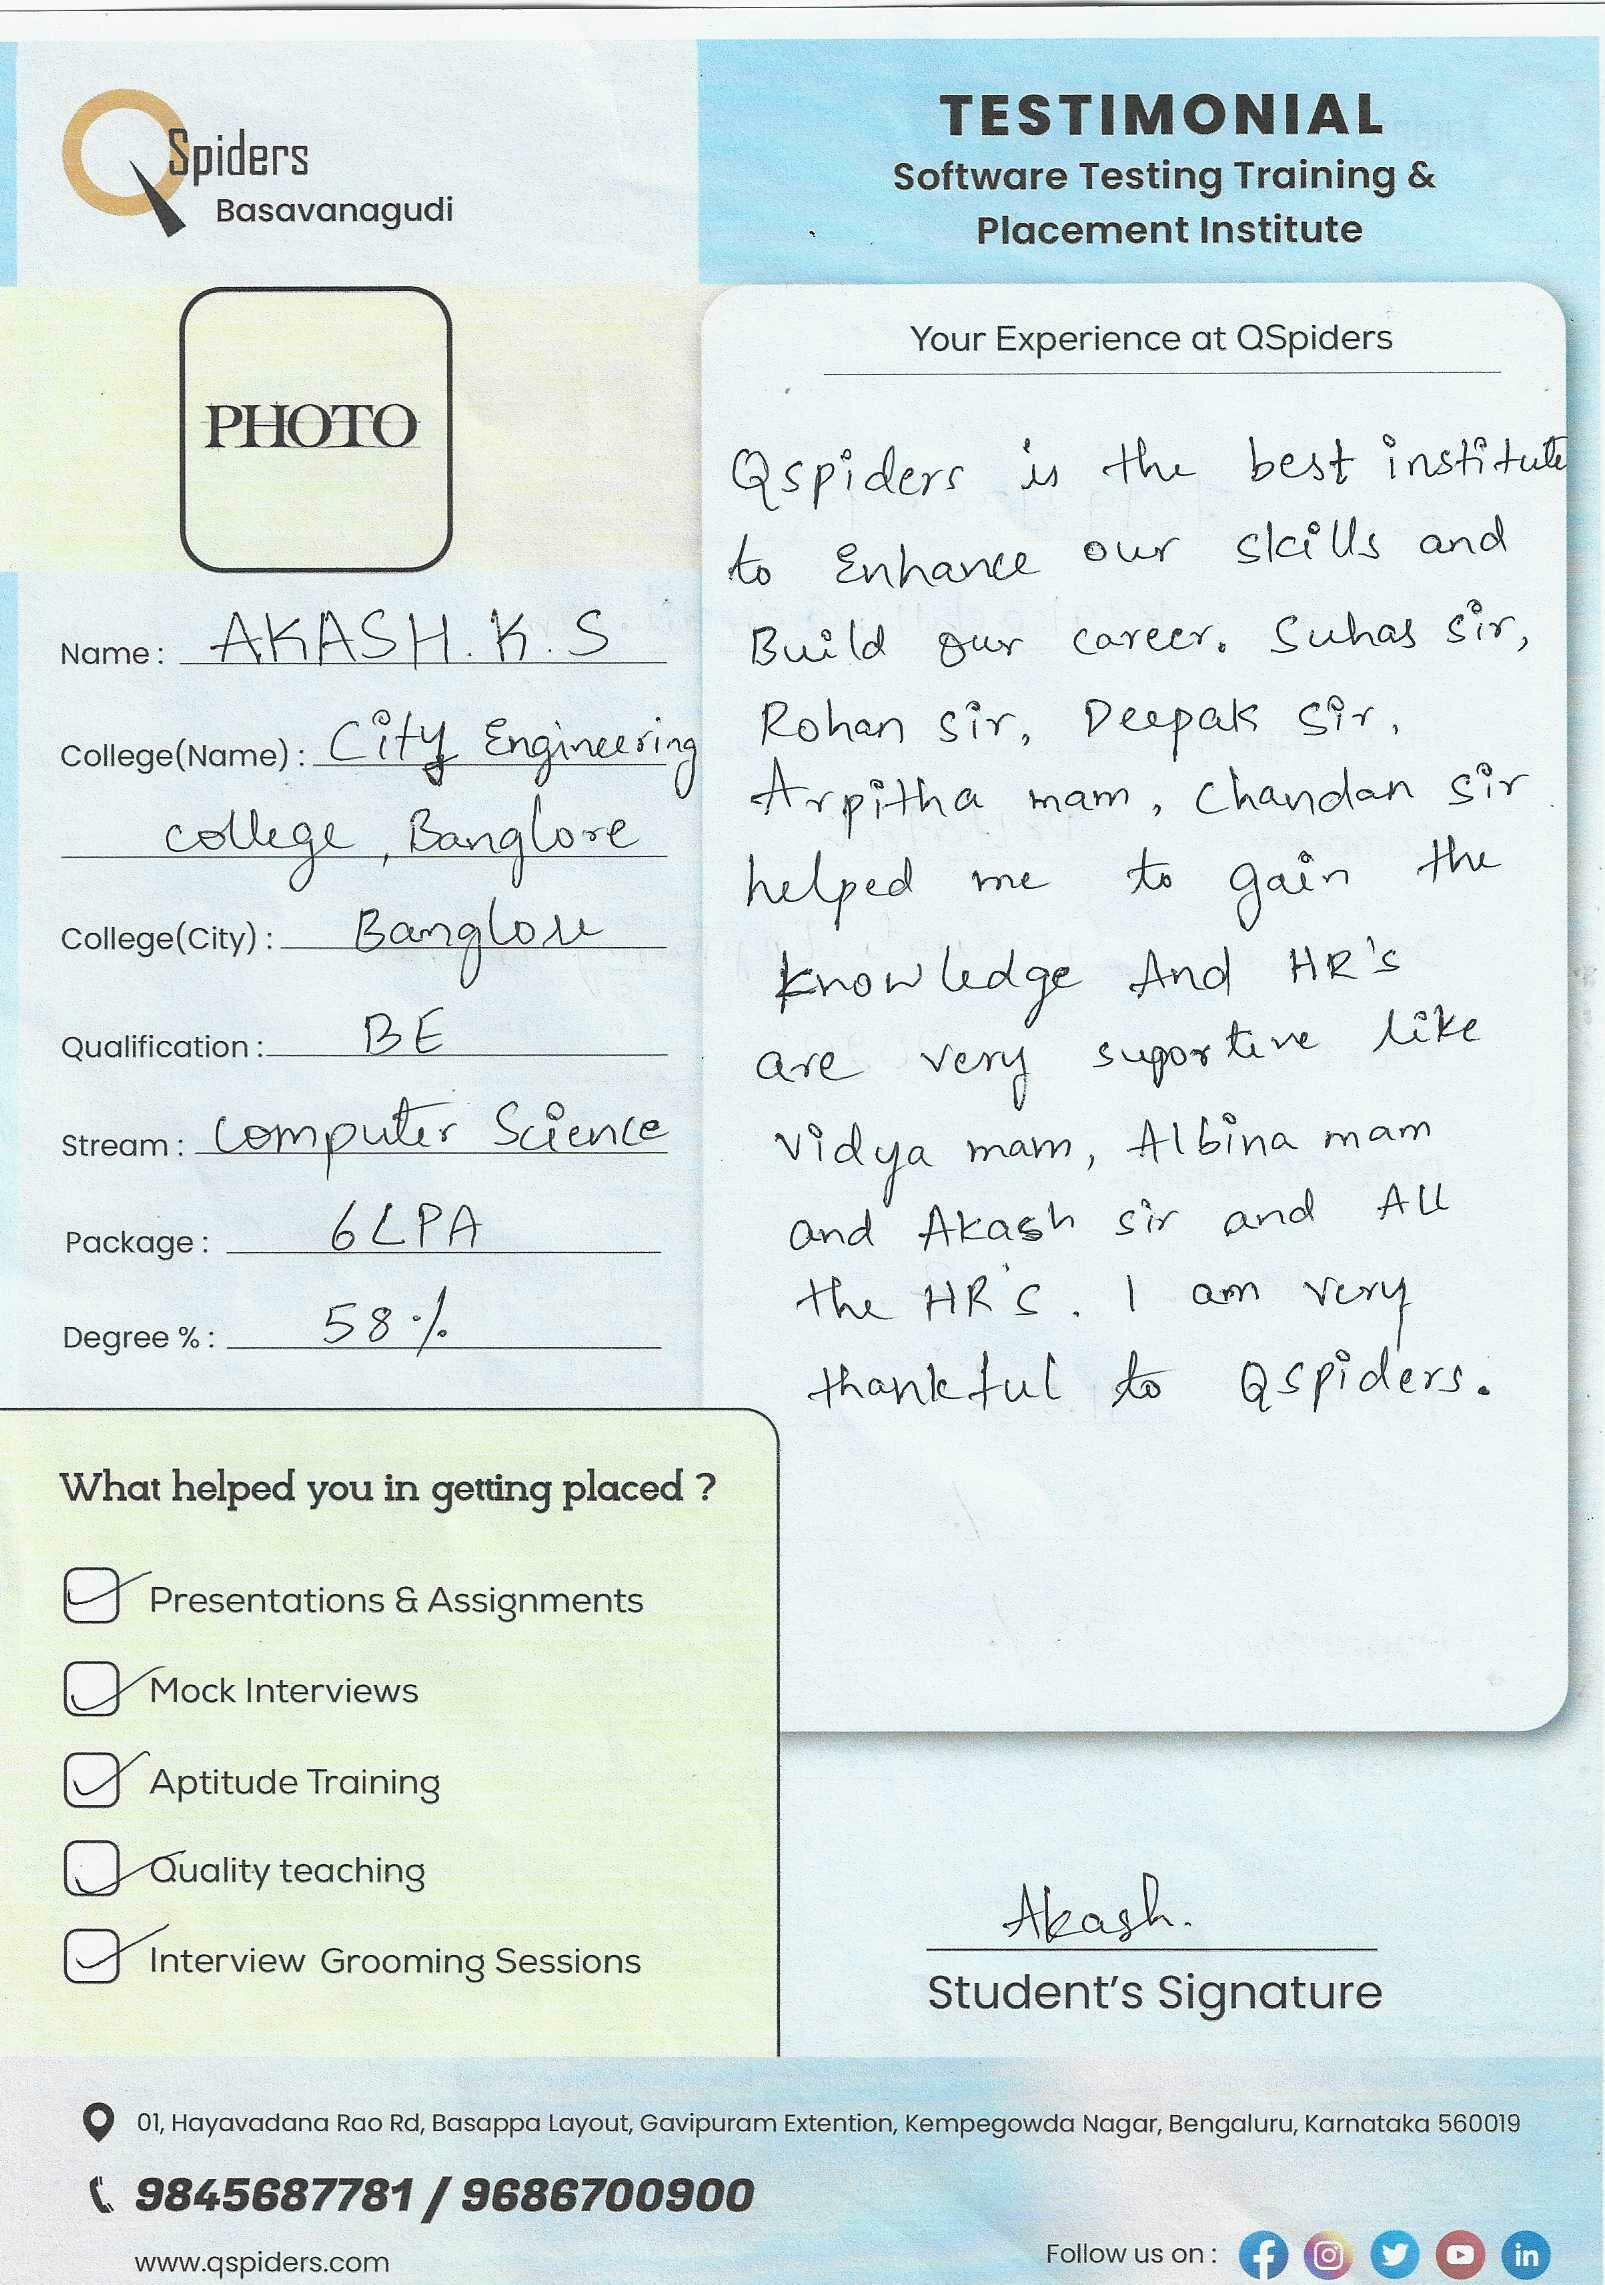 QSpiders
Basavanagudi
TESTIMONIAL
Software Testing Training &
Placement Institute
PHOTO
Name : AKASH. K. S
College(Name) : City Engineering
college, Banglore
College(City) : Banglore
Qualification : BE
Stream : Computer Science
Package : 6LPA
Degree % : 58%
Your Experience at QSpiders
Qspiders is the best institute
to Enhance our skills and
Build our career. Suhas sir,
Rohan sir, Deepak sir,
Arpitha mam, Chandan sir
helped me to gain the
knowledge And HR's
are very suportive like
Vidya mam, Albina mam
and Akash sir and All
the HR's. I am very
thankful to Qspiders.
What helped you in getting placed ?
Presentations & Assignments
Mock Interviews
Aptitude Training
Quality teaching
Interview Grooming Sessions
Akash.
Student's Signature
01, Hayavadana Rao Rd, Basappa Layout, Gavipuram Extention, Kempegowda Nagar, Bengaluru, Karnataka 560019
9845687781 / 9686700900
www.qspiders.com
Follow us on :